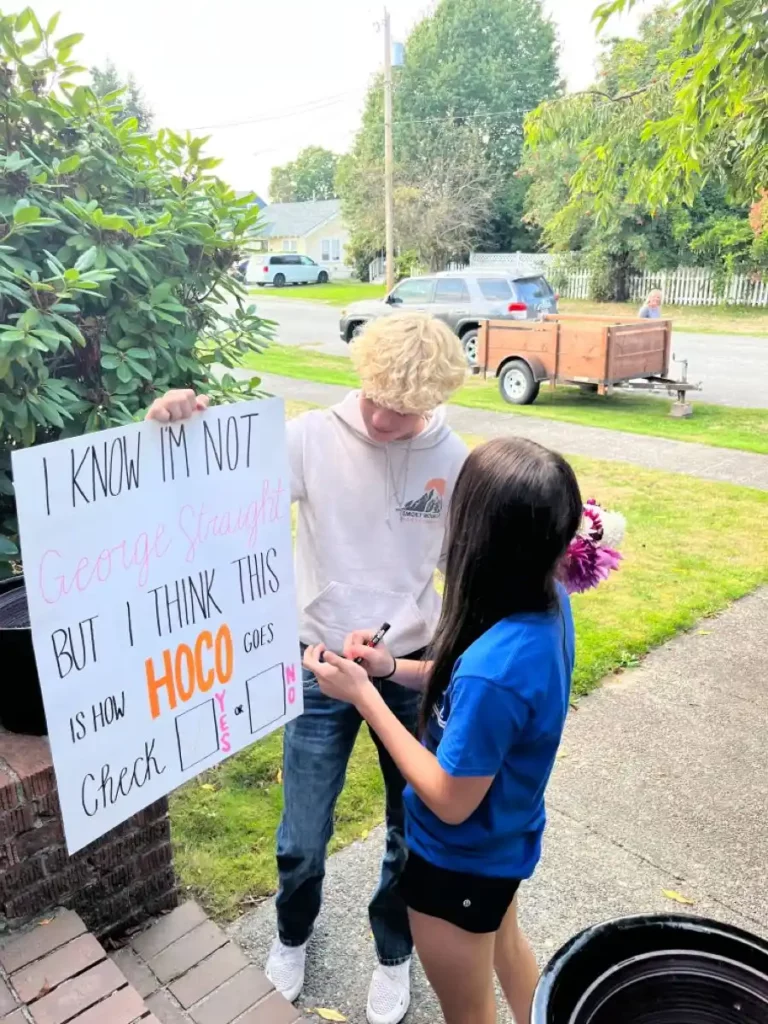 I KNOW I'M NOT
George Straight
BUT I THINK THIS
IS HOW HOCO GOES
Check YES OR NO